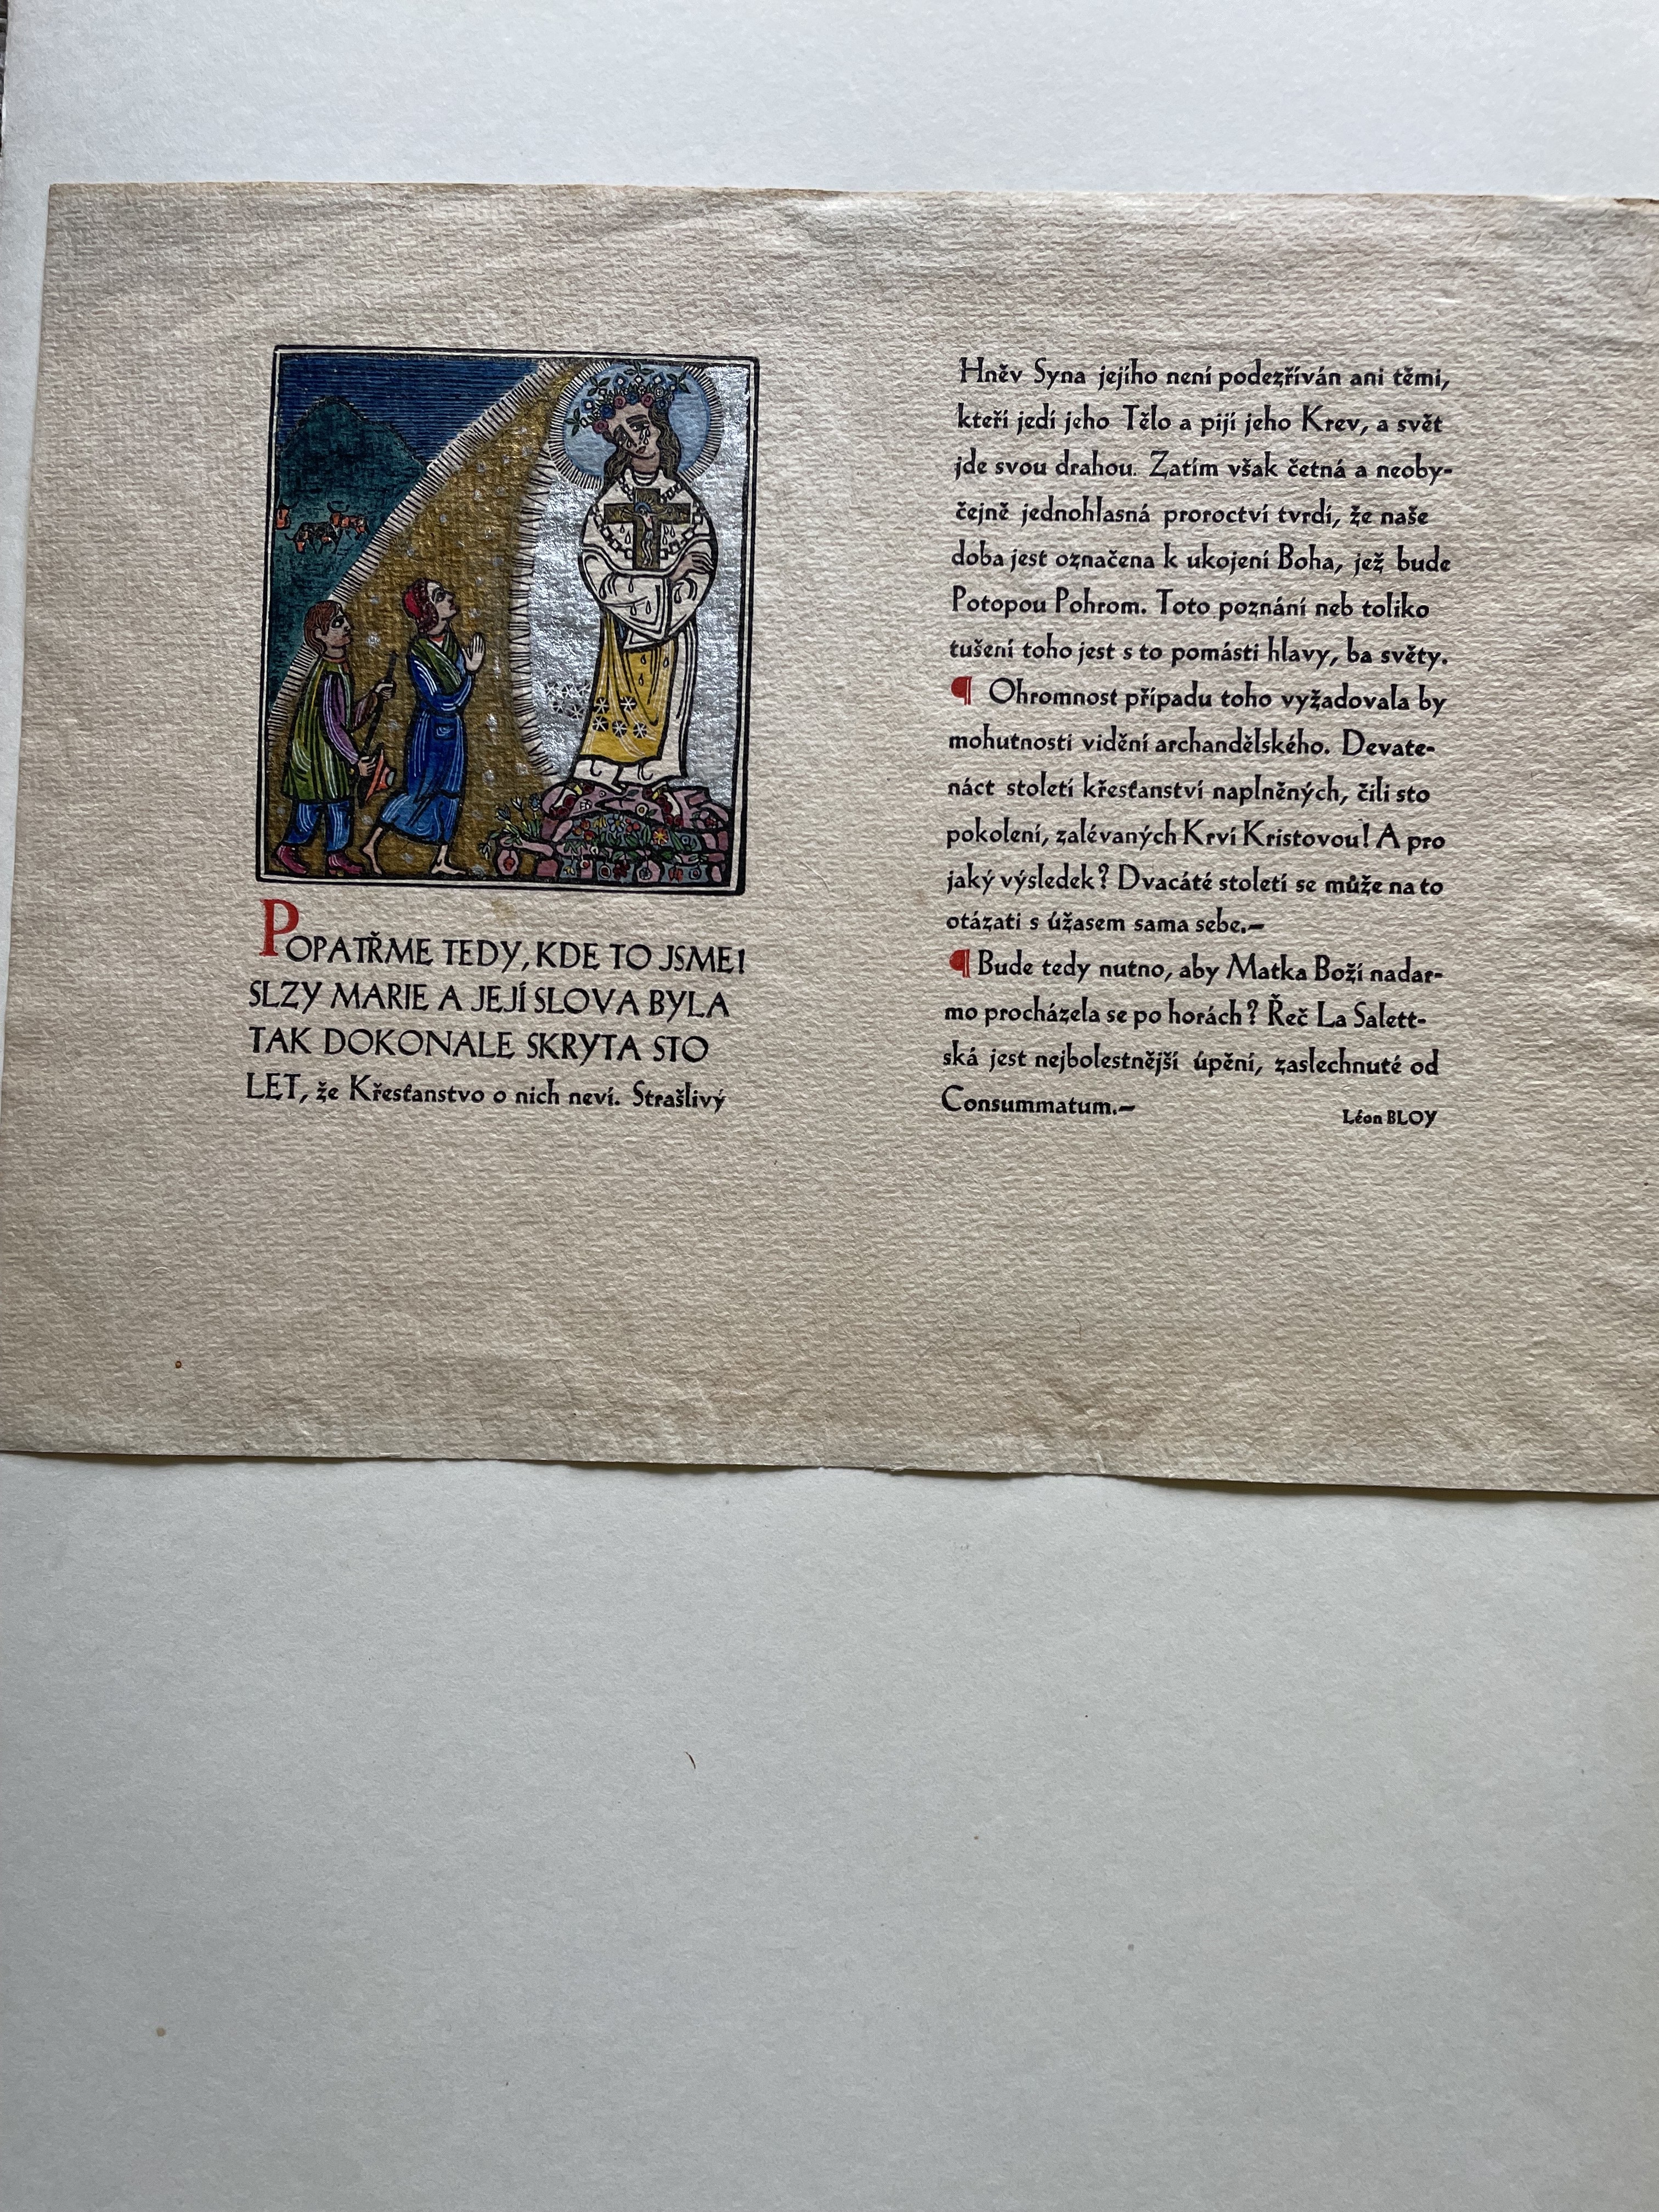 POPATŘME TEDY, KDE TO JSME!
SLZY MARIE A JEJÍ SLOVA BYLA
TAK DOKONALE SKRYTA STO
LET, že Křesťanstvo o nich neví. Strašlivý
Hněv Syna jejího není podezříván ani těmi,
kteří jedí jeho Tělo a pijí jeho Krev, a svět
jde svou drahou. Zatím však četná a neoby-
čejně jednohlasná proroctví tvrdí, že naše
doba jest označena k ukojení Boha, jež bude
Potopou Pohrom. Toto poznání neb toliko
tušení toho jest s to pomásti hlavy, ba světy.
¶ Ohromnost případu toho vyžadovala by
mohutnosti vidění archandělského. Devate-
náct století křesťanství naplněných, čili sto
pokolení, zalévaných Krví Kristovou! A pro
jaký výsledek? Dvacáté století se může na to
otázati s úžasem sama sebe.—
¶ Bude tedy nutno, aby Matka Boží nadar-
mo procházela se po horách? Řeč La Salett-
ská jest nejbolestnější úpění, zaslechnuté od
Consummatum.—
Léon BLOY